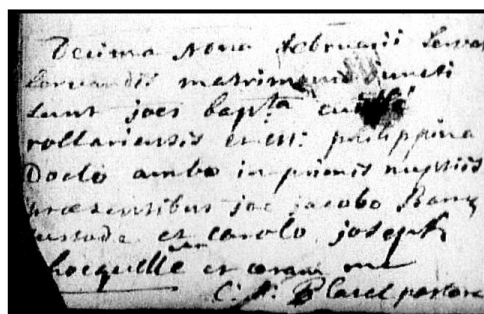 Decima Nona februarii Serva
Servandis matrimonio juncti
sunt joes bapta
rollariensis et philippina
Docto ambo in primis nuptiis
praesentibus joe jacobo
custode et carolo joseph
hocquelle et coram me
pastore